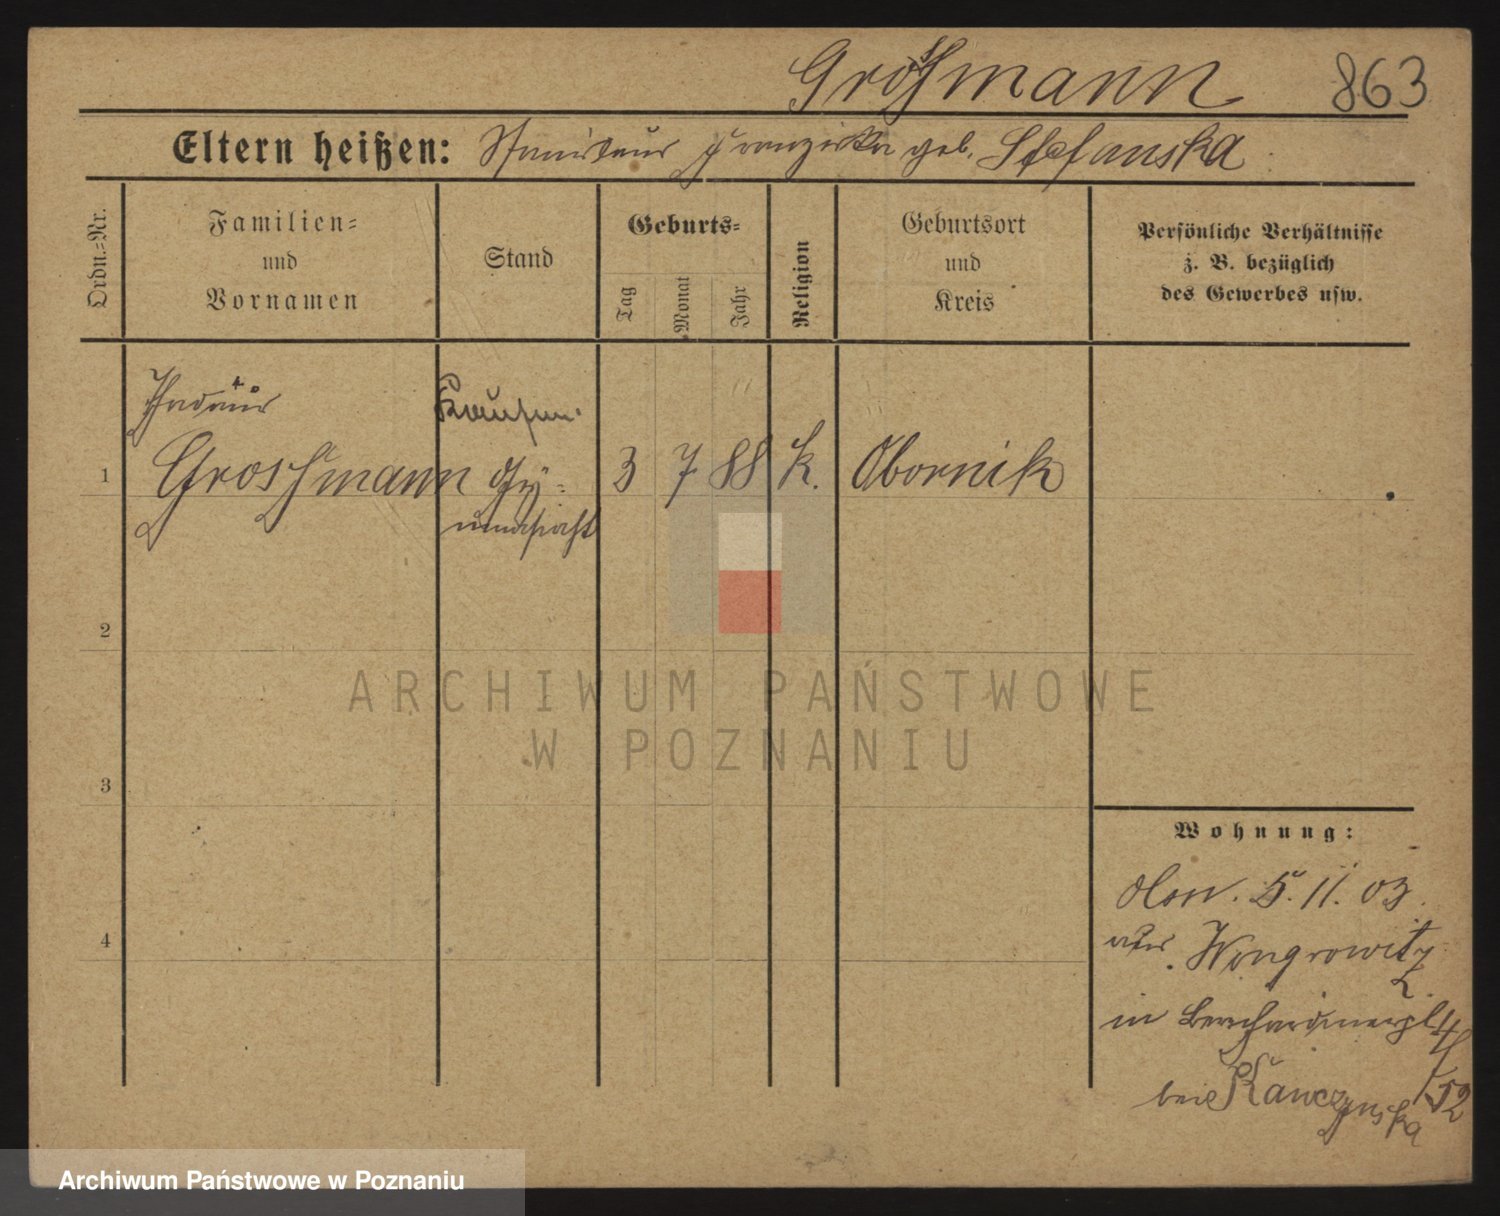 Großmann 863
Eltern heißen: Stanislaus Franziska geb. Stefanska
Ordn.=Nr.
Familien=
und
Vornamen
Stand
Geburts=
Tag
Monat
Jahr
Religion
Geburtsort
und
Kreis
Persönliche Verhältnisse
z. B. bezüglich
des Gewerbes usw.
Thadäus
1 Grossmann Gy= 3 7 88 k. Obornik
mnasiast
2
3
4
Wohnung:
5. 11. 03.
aus Wongrowitz
in Bernhardinerpl 4
bei Kawczynska 52
ARCHIWUM PAŃSTWOWE
W POZNANIU
Archiwum Państwowe w Poznaniu